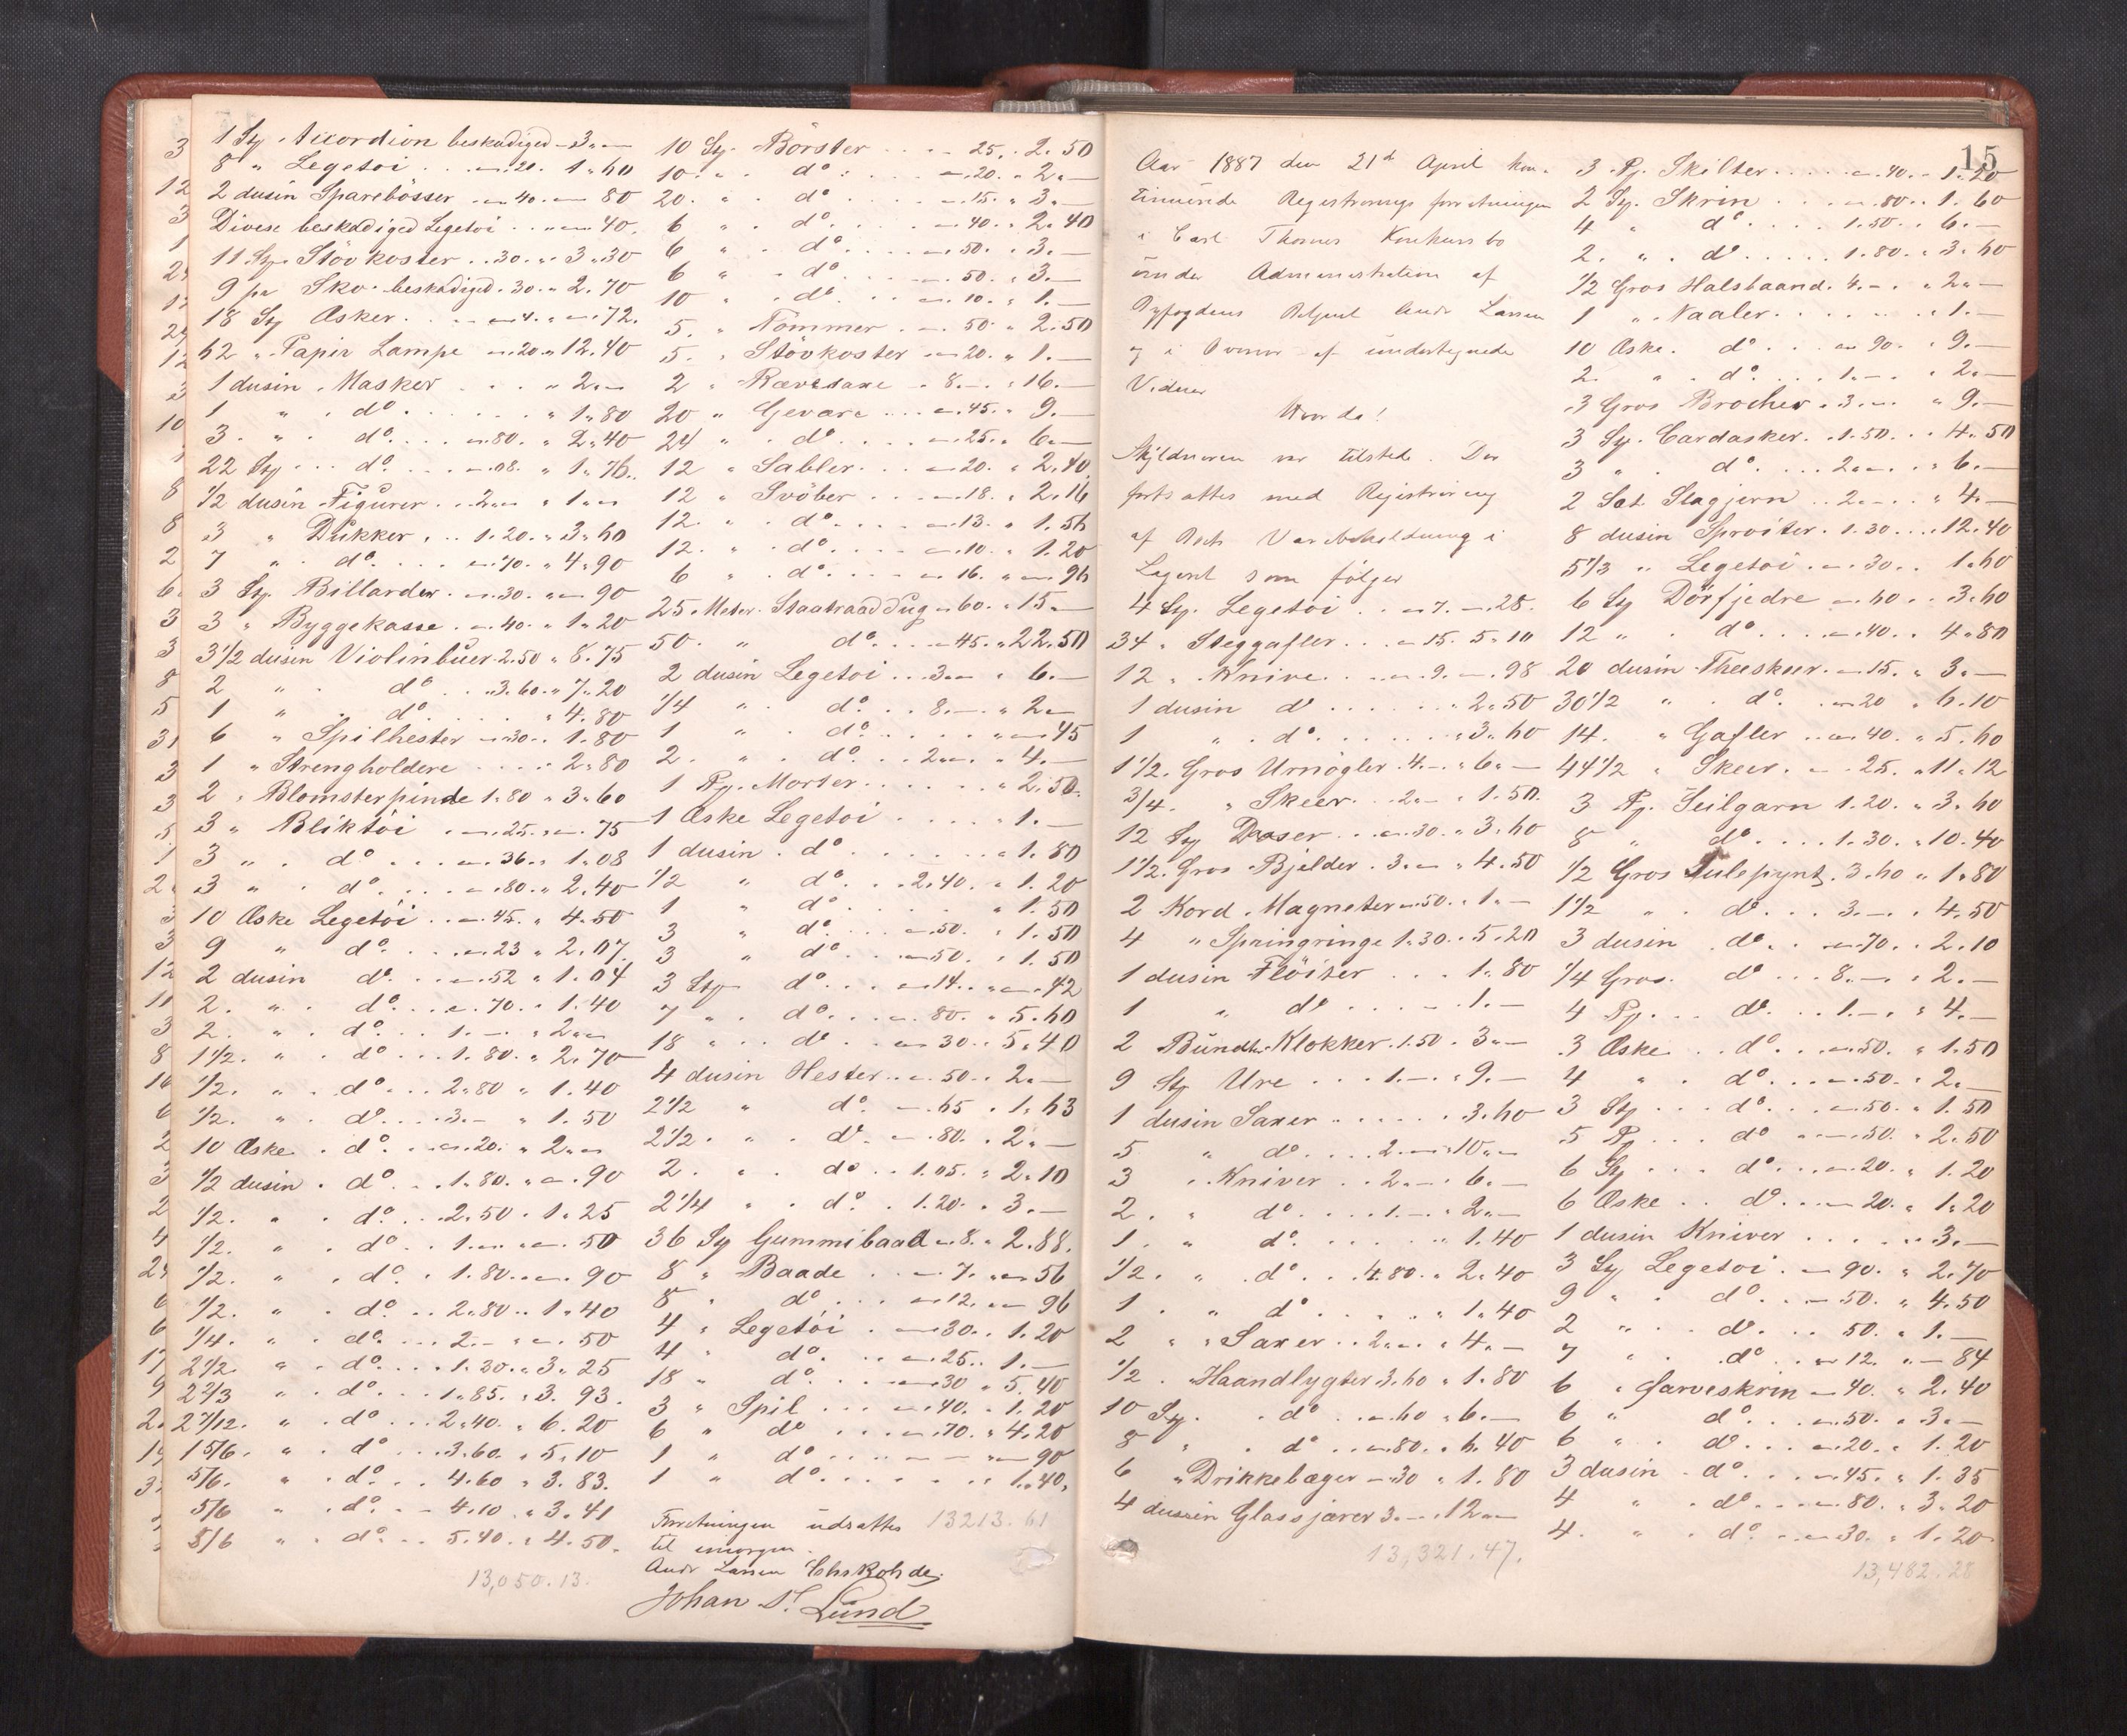 1 Sty Accordion beskadiged - 3 „ —
8 „ Legetøi . . . — „ 20. 1 „ 60
2 dusin Sparebösser . — 40 . — 80
Divese beskadiged Legetøi . . „ — 40.
11 Sty. Stövkoster . . 30. „ 3 „ 30
9 pa Sko beskadiged . 30. „ 2. 70
18 Sty Æsker . . — 4. „ — 72.
62 „ Papir Lampe — 20 „ 12.40
1 dusin . Masker . . . „ 2 „ —
1 „ . do . . . . . „ 1 „ 80
3. „ . do . . . — 80. „ 2 „ 40
22 Sty . . do . . . — 08. „ 1 „ 76.
1/2 dusin Figurer . . 2 „ — „ 1 „ —
3 „ Dukker . . . 1.20. „ 3 „ 60
7 „ do . . . . — 70. „ 4 „ 90
3 Sty. Billarder . — 30. „ — 90
3 „ Byggekasse . — 40. „ 1 „ 20
3 1/2 dusin Violinbuer 2.50 „ 8.75
2 „ . do . . „ 3.60. „ 7 „ 20
1 „ . do . . . . . „ 4.80
6 „ Spilhester — 30 . . 1.80
1 „ Strengholdere . . . . „ 2 „ 80
2 „ Blomsterpinde 1 „ 80 „ 3 „ 60
3 „ Bliktöi . — 25. „ — 75
3 „ . do . . . — 36. „ 1 „ 08
3 „ . do . . . — 80. „ 2.40
10 Æske Legetöi . . — 45. „ 4.50
9 „ do . . . — 23 „ 2.07.
2 dusin do . . . — 52 „ 1.04
2. „ . do . . . — 70. „ 1.40
2. „ . do . . . 1. — . „ 2 „ —
1 1/2. „ . do . . . 1.80. „ 2.70
1/2. „ . do . . . 2 „ 80 „ 1.40
1/2. „ . do . . . 3. — „ 1.50
10 Æske . do . . . — 20. „ 2 „ —
1/2 dusin . do . . . 1.80. „ — . 90
1/2. „ . do . . . 2.50 . 1 „ 25
1/2. „ . do . . . 1. — „ — . 50
1/2. „ . do . . 1.80 . „ — . 90
1/2. „ . do . . 2 „ 80 . . 1 „ 40
1/4. „ . do . . . 2. — „ — . 50
2 1/2 „ . do . . . 1.30. „ 3 „ 25
2 2/3 „ . do . . . 1 „ 85. „ 3.93.
2 7/12. „ . do . . . 2 „ 40. „ 6.20
1 5/6. „ . do . . . 3.60. „ 5.10
5/6. „ . do . . 4.60 „ 3.83.
5/6 „ . do . . - 4.10 . „ 3.41
5/6 „ . do . . 5.40 . „ 4.50.
13,050.13.
10 Sty. Börster . . . - 25. „ 2.50
10. „ . do . . . . — 20. „ 2 „ —
20. „ . do . . . . — 15. „ 3. —
6 „ . do . . . . — 40. „ 2.40
6 „ . do . . . . — 50. „ 3. —
6 „ . do . . . . — 50. „ 3. —
10 „ . do . . . — 10. „ 1. —
5. „ Tommer . — 50. „ 2.50
5. „ Stövkoster — 20. „ 1. —
2 „ Rævesaxe . 8. — . „ 16. —
20 „ Gevære . . . — 45. „ 9. —
24 „ . do . . . . — 25. „ 6. —
12 „ Sabler . . . — 20. „ 2.40
12 „ Svöber . . . — 18. „ 2.16
12. „ . do . . . . — 13. „ 1.56
12. „ . do . . . . — 10. „ 1.20
6 „ . do . . . . — 16. „ — 96
25 Meter. Staatraaddug — 60. „ 15 „ —
50. „ do . . . — 45. „ 22.50
2 dusin Legetöi . . 3 „ — „ 6. —
1/4 „ . do . . 8. — . „ 2 —
1 „ . do . . . . . „ — 45
2. „ . do . . 2 „ — . „ 4. —
1 Pg. Morter . . . . . „ 2.50.
1 Æske Legetöi . . . . . „ 1. —
1 dusin . do . . . . . . „ 1.80
1/2 „ do . . . 2.40. „ 1.20
1 „ do . . . . . . „ 1.50
3 „ do . . . — 50. „ 1.50
3 „ do . . . — 50. „ 1.50
3 Sty do . . . — 14 . „ — . 42
7 „ . do . . . — 80. „ 5.60
18 „ . . do . . — 30 . . 5.40
4 dusin Hester . . — 50 . . 2 „ —
2 1/2 „ do . . — 65 . 1 „ 63
2 1/2. „ . do . — 80. „ 2 „ —
2. „ . do . . 1.05. „ 2.10
2 1/4 „ . do . . 1.20. „ 3. —
36 Sty Gummibaad — 8. „ 2.88.
8 „ Baade . . — 7. „ — 56
8 „ do . . . — 12. „ — 96
4 „ Legetöi . — 30 . . 1.20
4 „ do . . . — 25 . . 1. —
18 „ do . . . — 30 „ 5.40
3 „ Spil . . . — 40. „ 1.20
6 „ do . . . — 70. „ 4.20
1 „ do . . . — „ — 90
1 „ do . . . . . . 1.40.
Forretningen udsættes 13213.61
til imorgen.
Andr Larsen Chs Rohde.
Johan S. Lund
15
Aar 1887 den 21de April kon-
tinuerede Registrerings forretningen
i Carl Thomes Konkurs bo
under Administration af
Byfogdens Betjent Andr Larsen
og i Overvær af undertegnede
Vidner
Hvorda!
Skyldneren var tilstede. Der
fortsattes med Registrering
af Boets Varebeholdning i
Lageret som fölger
4 Sty. Legetöi . . — 7. — . 28.
34 „ Steggafler . . . — 15. 5 „ 10
12 „ Knive . . . — 9. — . 98
1 dusin do . . . . . . „ 2 „ 50
1 „ . do . . . . . . „ 3 „ 60
1 1/2. Gros Urnögler . 4. — . „ 6 „ —
3/4. „ Skeer. . . 2 „ — „ 1.50.
12 Sty Daaser . . — 30. „ 3.60
1 1/2. Gros Bjelder . 3 „ — . „ 4.50
2 Kord . Magneter — 50. „ 1 „ —
4 „ Springringe 1 „ 30 . „ 5.20
1 dusin Flöiter . . . 1 „ 80
1 „ do . . . . - . 1. —
2 Bundt. Klokker . 1.50 . 3 „ —
9 Sty Ure . . . 1. — . „ 9. —
1 dusin Saxer . . . . . 3.60
5 „ do . . . . 2. — „ 10 „ —
3 „ Kniver . . 2 „ — . „ 6. —
2. „ do . . . . 1. — . „ 2 „ —
1. „ do . . . . . . „ 1.40
1/2. „ . do . . . 4.80. „ 2.40
1. „ do . . . . . . „ 1 „ 40
2 „ „ Saxer . . 2 „ — . „ 4. —
1/2. „ Haandlygter 3.60 „ 1.80
10 Sty. . do . . — 60 „ 6. —
8 „ . do . . — 80. „ 6.40
6 „ Drikkebæger — 30 „ 1.80
4 dussin Glassjærer 3. — . „ 12 „ —
13,321.47.
3 Pg. Skilter . . . . . — 40. „ 1.20
2 Sty. Skrin . . . . — 80. „ 1.60
4 „ do . . . . 1.50. „ 6. —
2. „ . do . . . . . 1.80. „ 3.60
1/2 Gros Halsbaand. 4. — . „ 2 „ —
1 „ Naaler . . . . . . . „ 1. —
10 Æske. do . . . — 90. „ 9. —
2. „ . do . . . . 1. — . „ 2 „ —
3 Gros Brocher . 3. — . „ 9. —
3 Sty. Cardasker . . 1.50. . . 4.50
3 „ . do . . . . 2 „ — . . „ 6. —
2 Sæt Slagjern . . 2. — . . „ 4. —
8 dusin Sproiter. 1.30 . . . . 12.40
5 1/3 „ Legetöi . — 30. . 1.60
6 Sty Dörfjedre — 60 . . 3.60
12 „ . do . . . — 40. „ 4 „ 80
20 dusin Theeskeer. — 15. „ 3. —
30 1/2 „ . do . . — 20 „ 6.10
14. „ Gafler . . — 40. „ 5.60
44 1/2 „ Skeer. . — 25. „ 11 „ 12
3 Pg. Seilgarn 1.20. „ 3.60
8 „ do . . . . 1.30. „ 10.40
1/2 Gros Julepynt. 3.60 „ 1 „ 80
1 1/2 „ . do . . . 3. — . „ 4.50
3 dusin . do „ . . — 70. „ 2.10
1/4 Gros. do . . . 8. — . „ 2. —
4 Pg. . . do . . . 1. — . „ 4. —
3 Æske . . do . . . — 50. „ 1.50
4 „ . do . . . — 50. „ 2. —
3 Sty . . . do . . . — 50. „ 1.50
5 Pg . . . do . — 50. „ 2.50
6 Sty . . . do . . . — 20. „ 1.20
6 Æske . . do . . . — 20. „ 1.20
1 dusin Kniver . . . . . „ 3. —
3 Sty Legetöi . — 90. „ 2.70
9 „ . do . . . — 50. „ 4.50
2 „ . . do . . . 50. „ 1. —
7 „ . do . . — 12. „ — 84
6 „ Farveskrin — 40. „ 2.40
6 „ do . . . — 50. „ 3. —
6 „ . do . . . — 20. „ 1.20
3 dusin . do . . . — 45. „ 1.35
4 „ . do . . . — 80. „ 3.20
4. „ . do . . — 30. „ 1.20
13,482.28